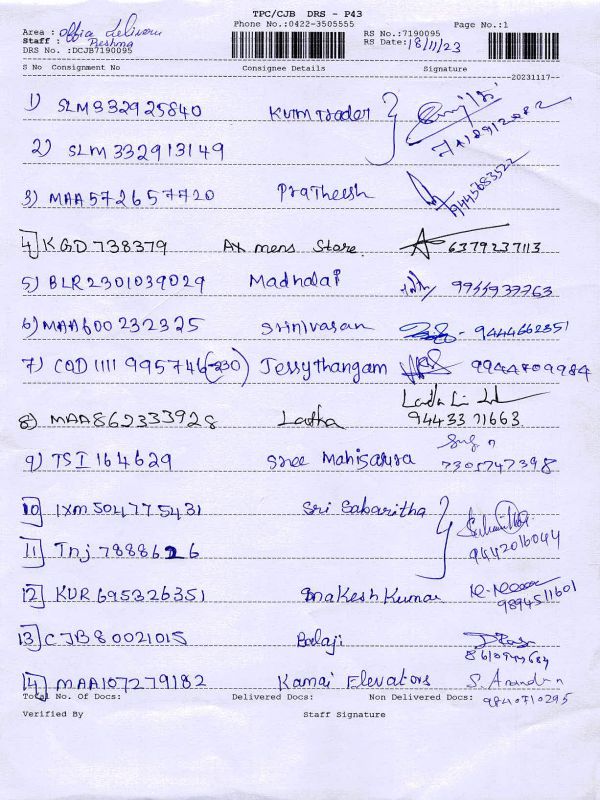 TPC/CJB DRS - P43
Phone No.:0422-3505555 Page No.:1
Area : Office delivery
Staff : Reshma
DRS No. :DCJB7190095
RS No.:7190095
RS Date: 18/11/23
S No Consignment No Consignee Details Signature
20231117
1) SLM332925840 Kurm trader
2) SLM 332913149
3) MAA572657720 Pratheesh 9445683522
4 KGD 738379 Ax mens Store 6379237113
5) BLR2301039029 Madhalai
6) MAA600232325 Srinivasan 9444662351
7) COD 1111 995746 (230) Jessythangam 9944709984
8) MAA862333928 Latha 9443371663
9) TSI 164629 Sree Mahisasura 7305747398
10 IXM504775431 Sri Sabaritha
11 TnJ 7888626 9442016044
12 KUR 695326351 Makesh Kumar 9894511601
13 CJB80021015 Balaji
14 MAA107279182 Kamai Elevators S. Anandan
Total No. Of Docs: Delivered Docs: Non Delivered Docs: 9840710295
Verified By Staff Signature